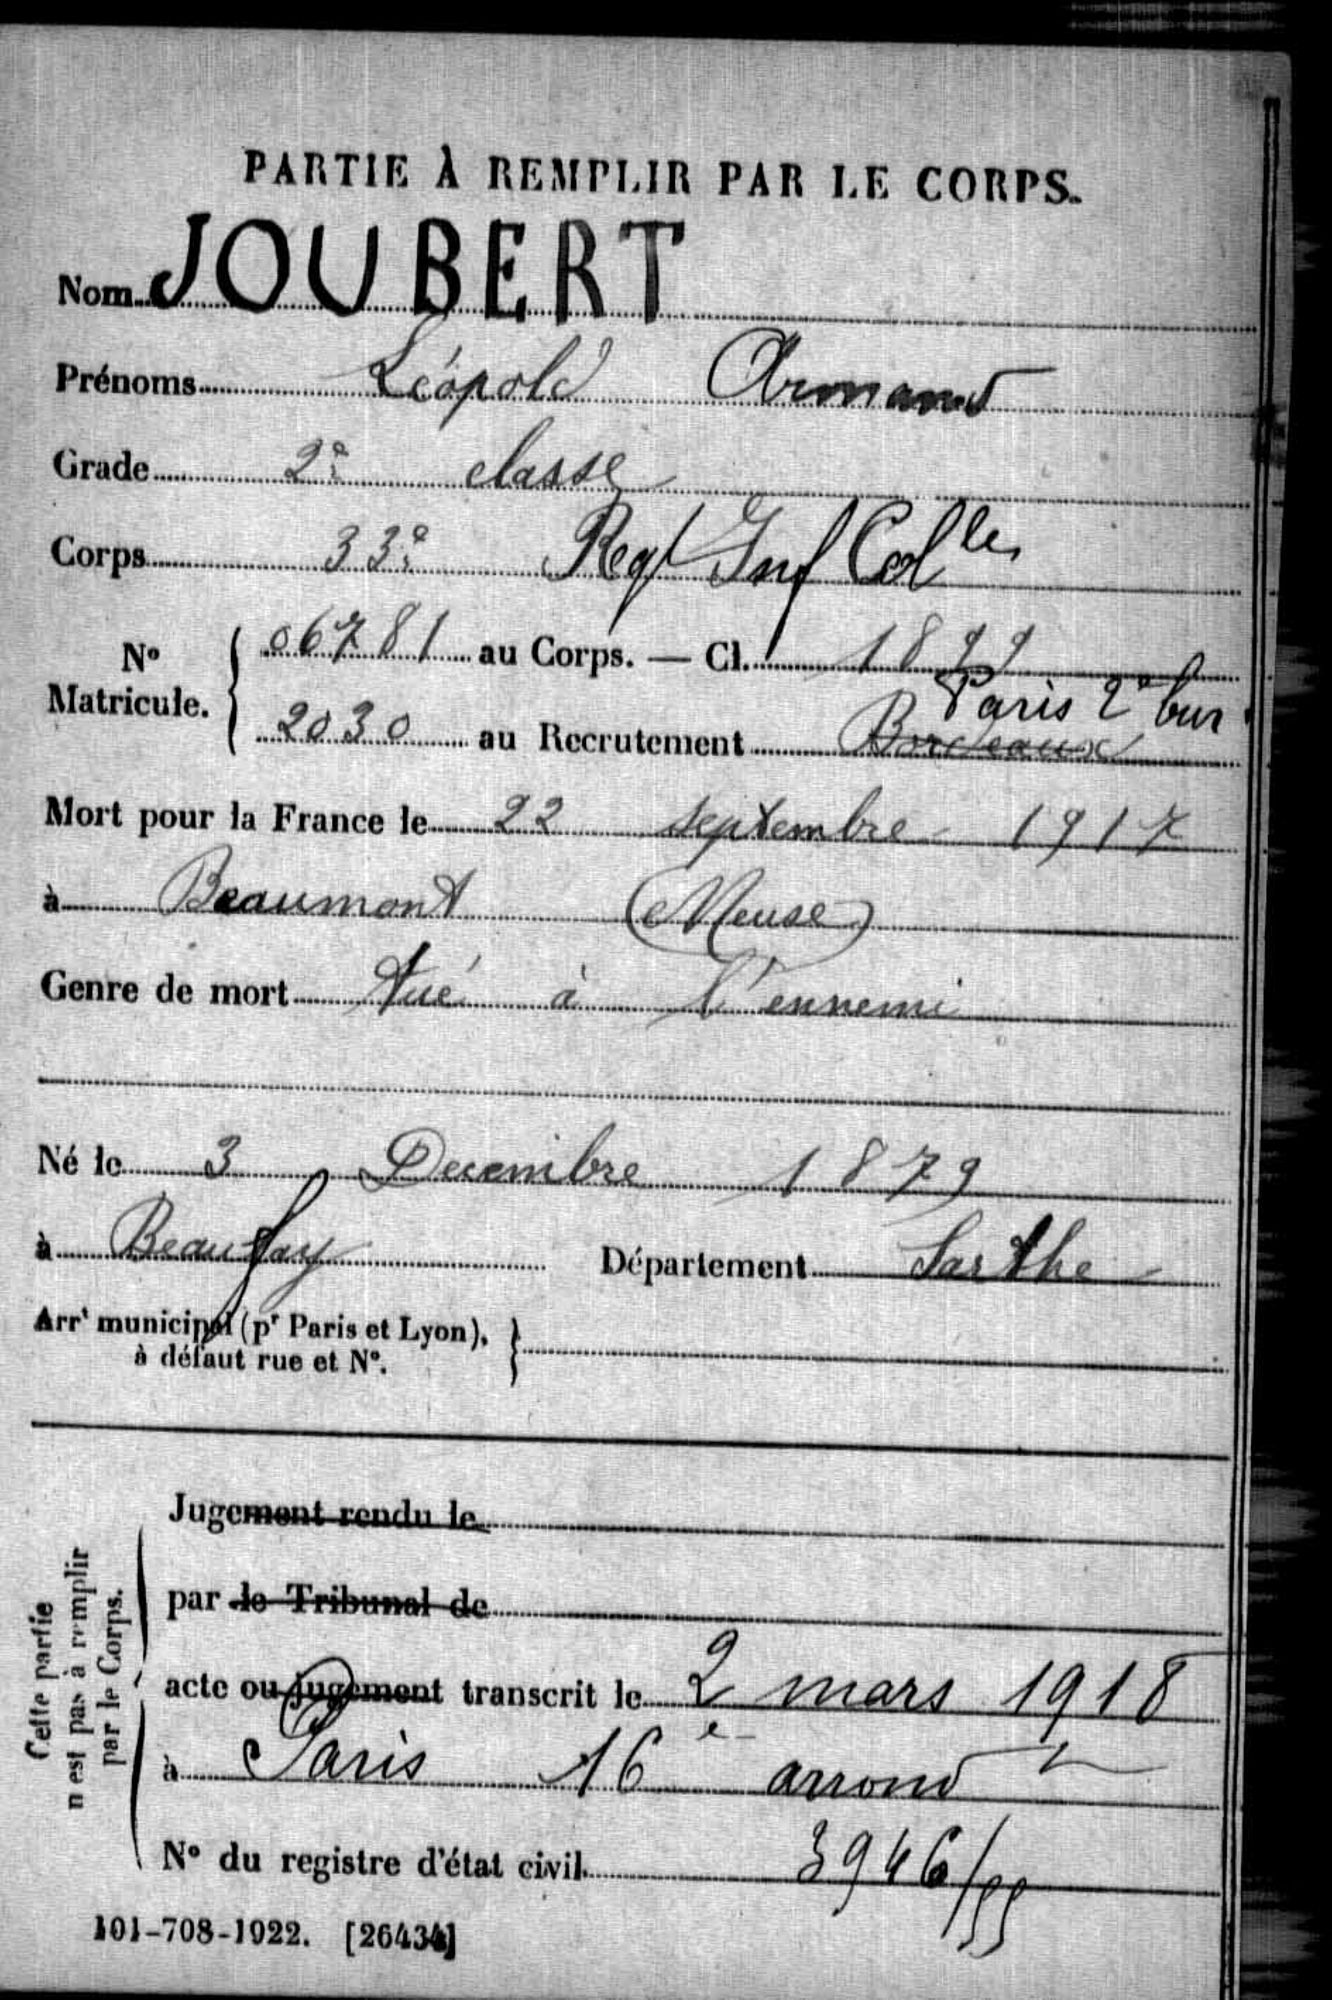 PARTIE À REMPLIR PAR LE CORPS.
Nom JOUBERT
Prénoms Léopold Armand
Grade 2e classe
Corps 33e Regt Inf Colle
No Matricule. { 06781 au Corps. — Cl. 1899
Paris 2e bur
2030 au Recrutement Bordeaux
Mort pour la France le 22 septembre 1917
à Beaumont (Meuse)
Genre de mort Tué à l'ennemi
Né le 3 Decembre 1879
à Beaufay Département Sarthe
Arrt municipal (pr Paris et Lyon), }
à défaut rue et No.
Cette partie
n'est pas à remplir
par le Corps.
Jugement rendu le
par le Tribunal de
acte ou jugement transcrit le 2 mars 1918
à Paris 16e arrondt
No du registre d'état civil 3946/55
101-708-1922. [26434]